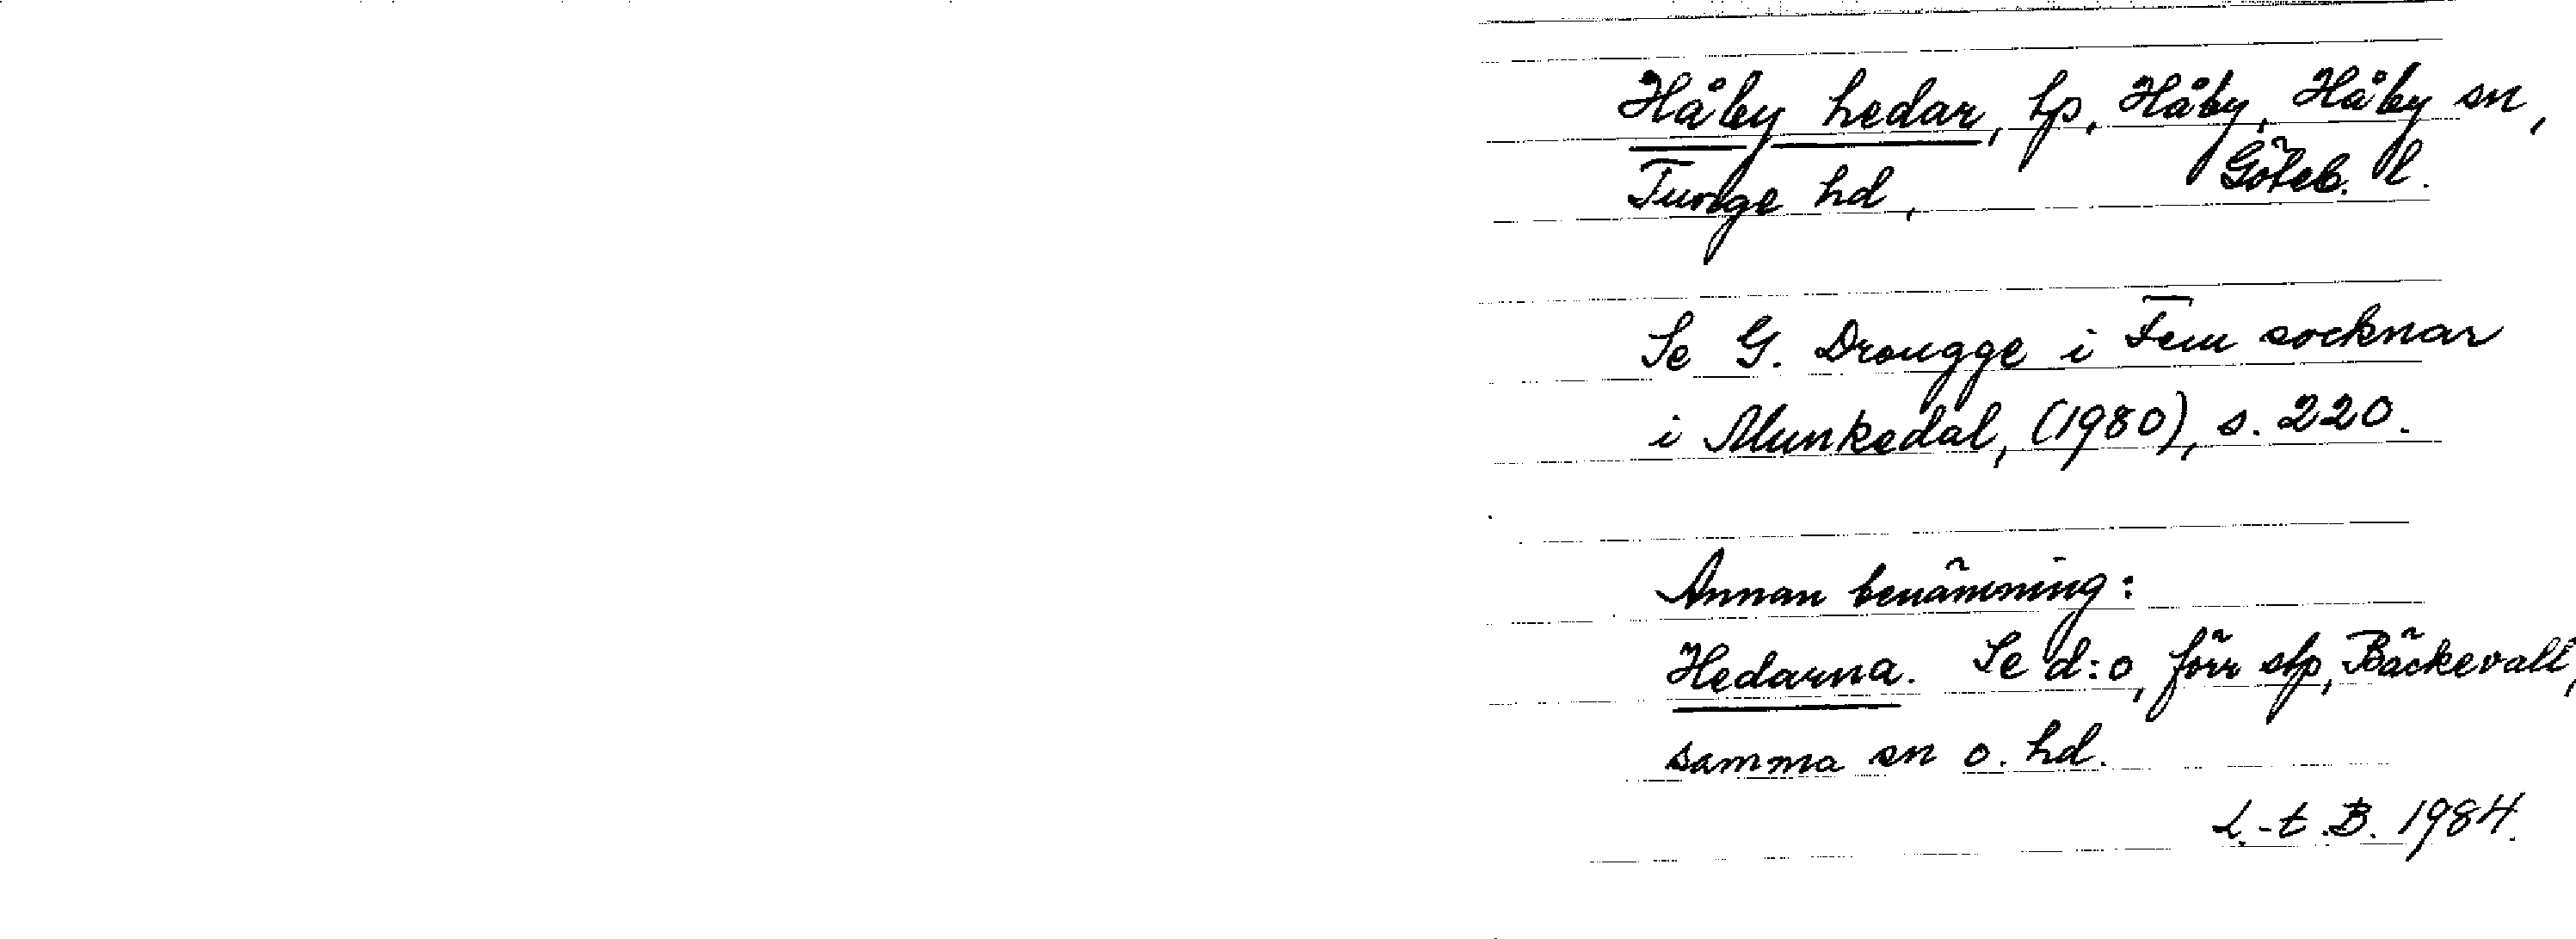 Håby hedar, hp, Håby, Håby sn,
Tunge hd, Göteb. l.
Se G. Drougge i Fem socknar
i Munkedal, (1980), s. 220.
Annan benämning:
Hedarna. Se d:o, förr stp, Bäckevall,
samma sn o. hd.
L.-t. B. 1984.